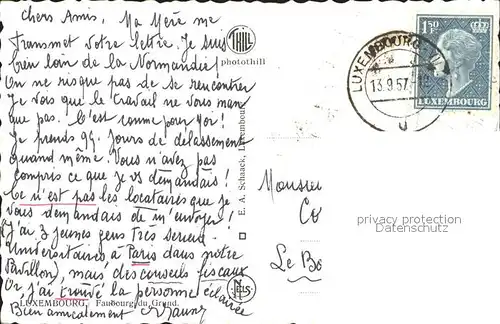 Chers Amis, Ma Mère me
transmet votre lettre. Je suis
bien loin de la Normandie!
On ne risque pas de se rencontrer
Je vois que le travail ne vous manque
pas. C'est comme pour moi!
Je prends qq. jours de délassement
quand même. Vous n'avez pas
compris ce que je vs demandais!
Ce n'est pas les locataires que je
vous demandais de m'envoyer!
J'ai 3 jeunes gens très sérieux
Universitaires à Paris dans notre
Pavillon), mais des conseils fiscaux
Or, j'ai trouvé la personne éclairée
Bien amicalement
LUXEMBOURG. Faubourg du Grund.
THILL
photothill
E. A. Schaack, Luxembourg
NELS
LUXEMBOURG
13.9.57
1F50
LUXEMBOURG
Monsieur
Co
Le Bo
privacy protection
Datenschutz